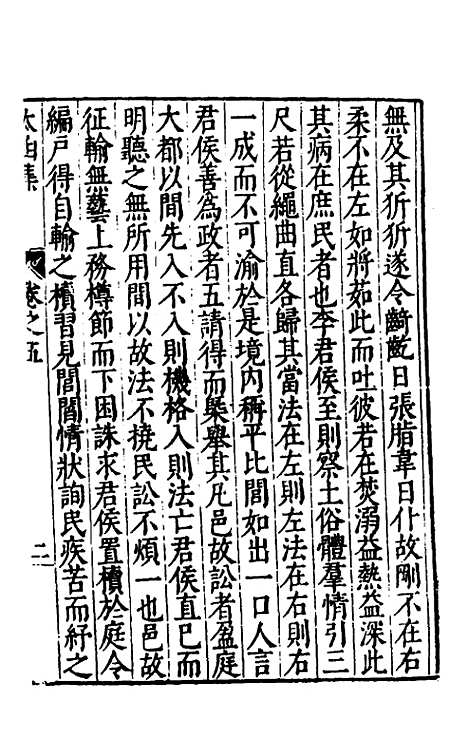 無及其狾狾遂令齮齕日張脂韋日什故剛不在右
柔不在左如將茹此而吐彼若在焚溺益熱益深此
其病在庶民者也李君侯至則察土俗體羣情引三
尺若從繩曲直各歸其當法在左則左法在右則右
一成而不可渝於是境内稱平比閭如出一口人言
君侯善爲政者五請得而槩舉其凡邑故訟者盈庭
大都以間先入不入則機格入則法亡君侯直已而
明聽之無所用間以故法不撓民訟不煩一也邑故
征輸無藝上務樽節而下困誅求君侯置櫝於庭令
編戶得自輸之櫝習見閭閻情狀詢民疾苦而紓之
太函集 卷之五 二